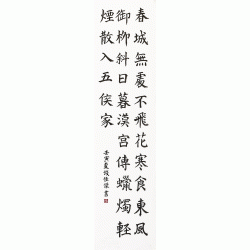 春城無處不飛花寒食東風
御柳斜日暮漢宮傳蠟燭輕
煙散入五侯家